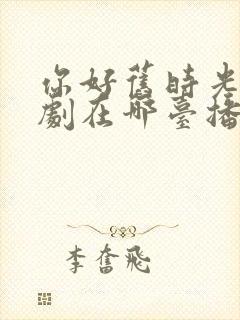 你好舊時光
劇在哪臺播
李奮飛